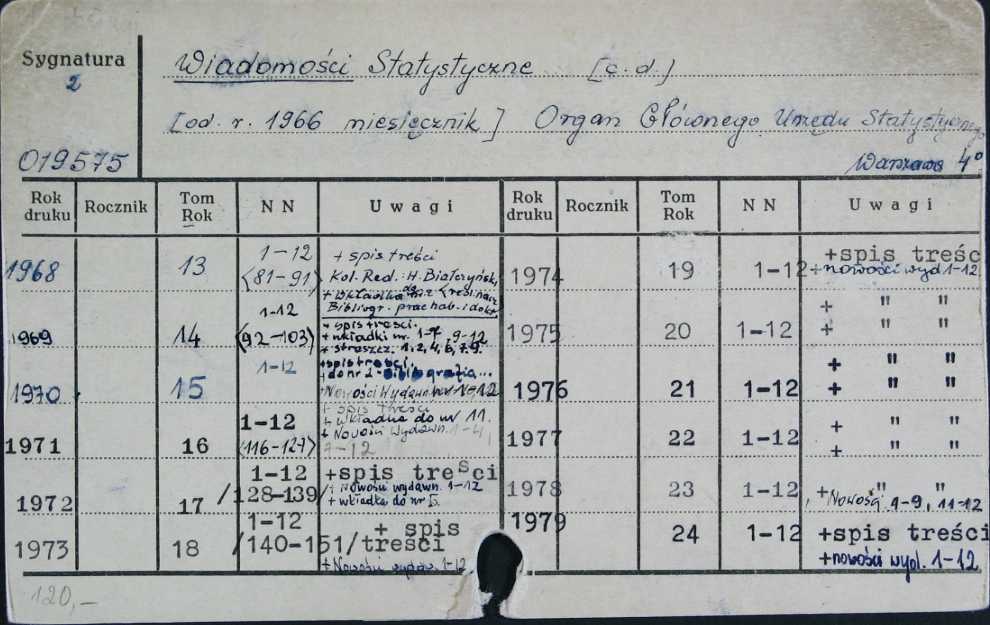 Sygnatura
2
Wiadomości Statystyczne [c.d.]
[od. r. 1966 miesięcznik] Organ Głównego Urzędu Statystycznego
019575
Warszawa 4°
Rok druku Rocznik Tom Rok N N Uwagi Rok druku Rocznik Tom Rok N N Uwagi
1968 13 1-12 (81-91) + spis treści
Kol. Red.: H. Białczyński
+ wkładka do nr 2
Bibliogr. prac hab. i dokt.
1969 14 1-12 (92-103) + spis treści.
+ wkładki nr. 1-7, 9-12
+ streszcz. 1,2,4,6,7,9.
1970 15 1-12 + spis treści
+ do nr 2 - Bibliografia...
+ Nowości Wydawn. nr 1-12
1971 16 1-12 (116-127) + spis treści
+ wkładka do nr 11.
+ Nowości Wydawn. 1-4,
7-12
1972 17 1-12 /128-139/ +spis treści
+ Nowości wydawn. 1-12
+ wkładka do nr 5.
1973 18 1-12 /140-151/ + spis treści
+ Nowości wydaw. 1-12.
1974 19 1-12 +spis treśc
+ nowości wyd 1-12
1975 20 1-12 + " "
+ " "
1976 21 1-12 + " "
+ " "
1977 22 1-12 + " "
+ " "
1978 23 1-12 + " "
Nowości 1-9, 11-12
1979 24 1-12 +spis treści
+nowości wyd. 1-12
120,-